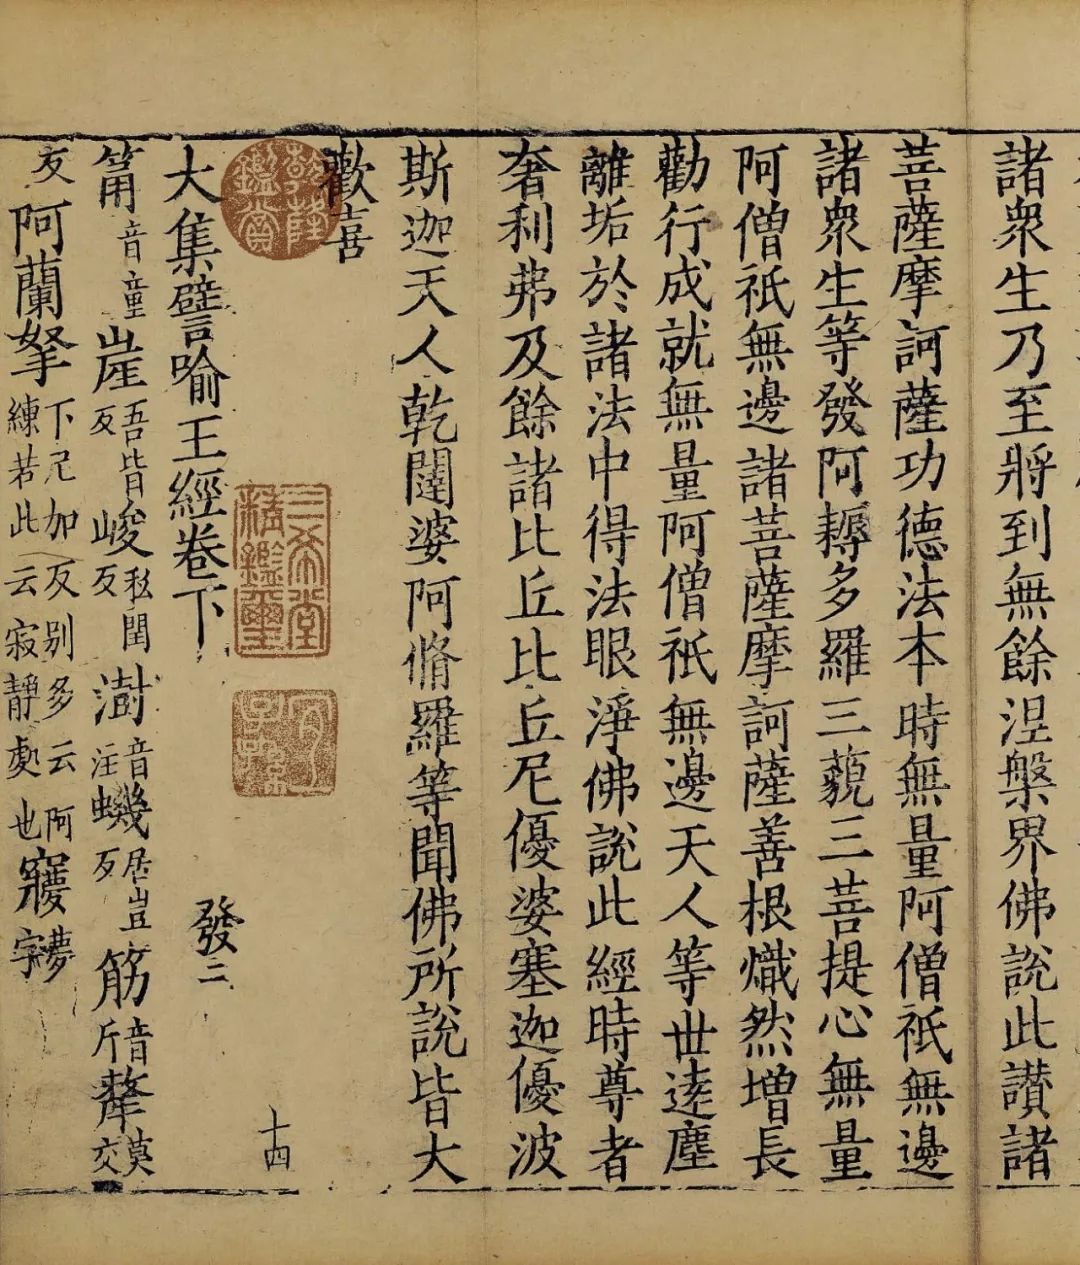 諸衆生乃至將到無餘涅槃界佛說此讃諸
菩薩摩訶薩功德法本時無量阿僧祇無邊
諸衆生等發阿耨多羅三藐三菩提心無量
阿僧祇無邊諸菩薩摩訶薩善根熾然增長
勸行成就無量阿僧祇無邊天人等世逺塵
離垢於諸法中得法眼淨佛說此經時尊者
奢利弗及餘諸比丘比丘尼優婆塞迦優波
斯迦天人乾闥婆阿脩羅等聞佛所說皆大
歡喜
乾隆鑑賞
三希堂精鑑璽
宜子孫
十四
大集譬喻王經卷下 發二
筩音童崖吾皆反峻私閏反澍音注蟣居豈反筋音斤犛莫交
反阿蘭拏下尼加反別多云阿練若此云寂靜處也㝱夢字